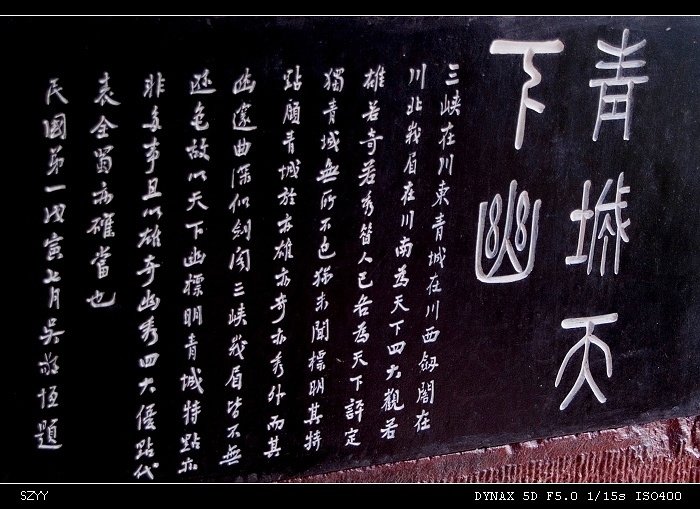 青城天
下幽
三峡在川東青城在川西劔閣在
川北峩眉在川南為天下四大觀若
雄若奇若秀昔人已各為天下評定
獨青城無所不包猶未聞標明其特
點願青城於亦雄亦奇亦秀外而其
幽邃曲深似劍閣三峡峩眉皆不無
遜色故以天下幽標明青城特點亦
非多事且以雄奇幽秀四大優點代
表全蜀亦確當也
民國第一戊寅七月吳敬恆題
SZYY
DYNAX 5D F5.0 1/15s ISO400